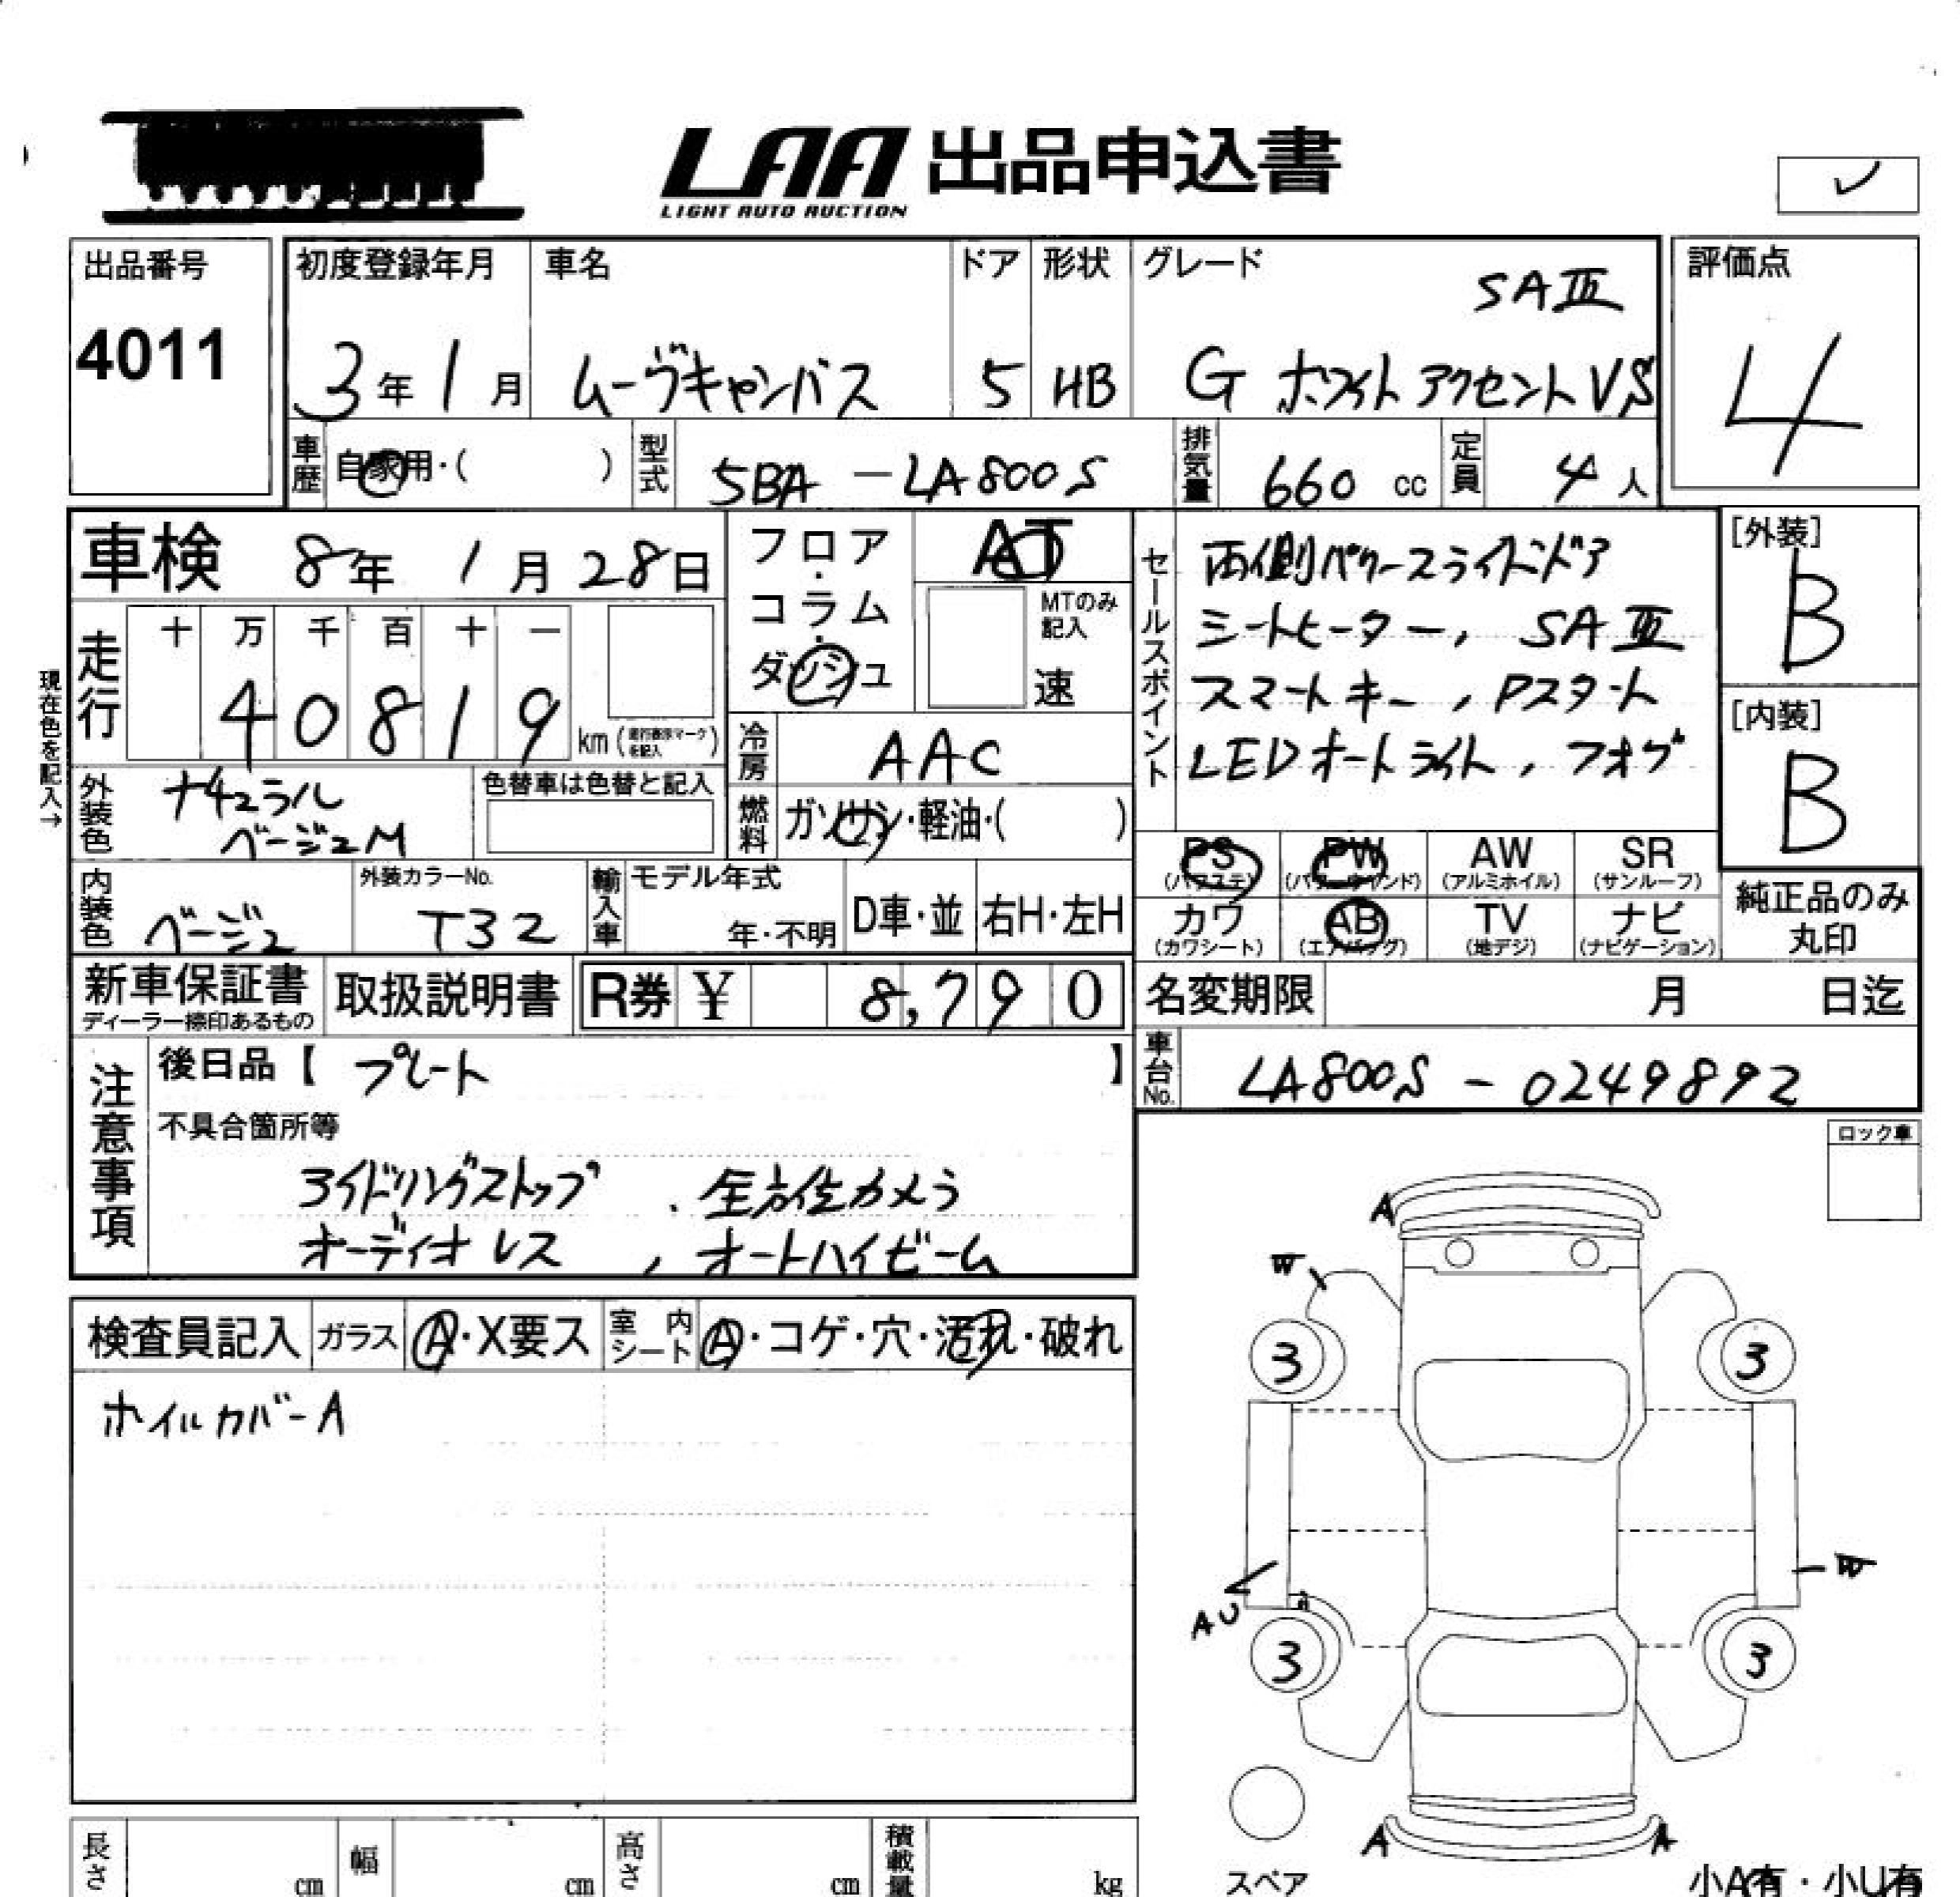 LAA 出品申込書
LIGHT AUTO AUCTION
出品番号
4011
初度登録年月
3年1月
車名
ムーヴキャンバス
ドア
5
形状
HB
グレード
SAⅢ
G ホワイトアクセントVS
評価点
4
車歴
自家用・( )
型式
5BA-LA800S
排気量
660 cc
定員
4人
車検 8年 1月 28日
フロア・コラム・ダッシュ
AT
MTのみ記入
速
セールスポイント
両側パワースライドドア
シートヒーター, SAⅢ
スマートキー, Pスタート
LEDオートライト, フォグ
[外装]
B
[内装]
B
現在色を記入→
走行
十 万 千 百 十 一
4 0 8 1 9
km (走行表示マークを記入)
冷房
AAC
外装色
ナチュラル
ベージュM
色替車は色替と記入
燃料
ガソリン・軽油・( )
PS
(パワステ)
PW
(パワーウインド)
AW
(アルミホイル)
SR
(サンルーフ)
カワ
(カワシート)
AB
(エアバッグ)
TV
(地デジ)
ナビ
(ナビゲーション)
純正品のみ
丸印
内装色
ベージュ
外装カラーNo.
T32
輸入車
モデル年式
年・不明
D車・並
右H・左H
新車保証書
ディーラー捺印あるもの
取扱説明書
R券 ¥ 8,790
名変期限 月 日迄
車台No.
LA800S - 0249892
注意事項
後日品【 プレート 】
不具合箇所等
アイドリングストップ 、全方位カメラ
オーディオレス 、オートハイビーム
ロック車
検査員記入
ガラス
A・X要ス
室内シート
A・コゲ・穴・汚れ・破れ
ホイルカバーA
A
W
3
3
W
A U
A
3
3
A
A
スペア
小A有・小U有
長さ
cm
幅
cm
高さ
cm
積載量
kg